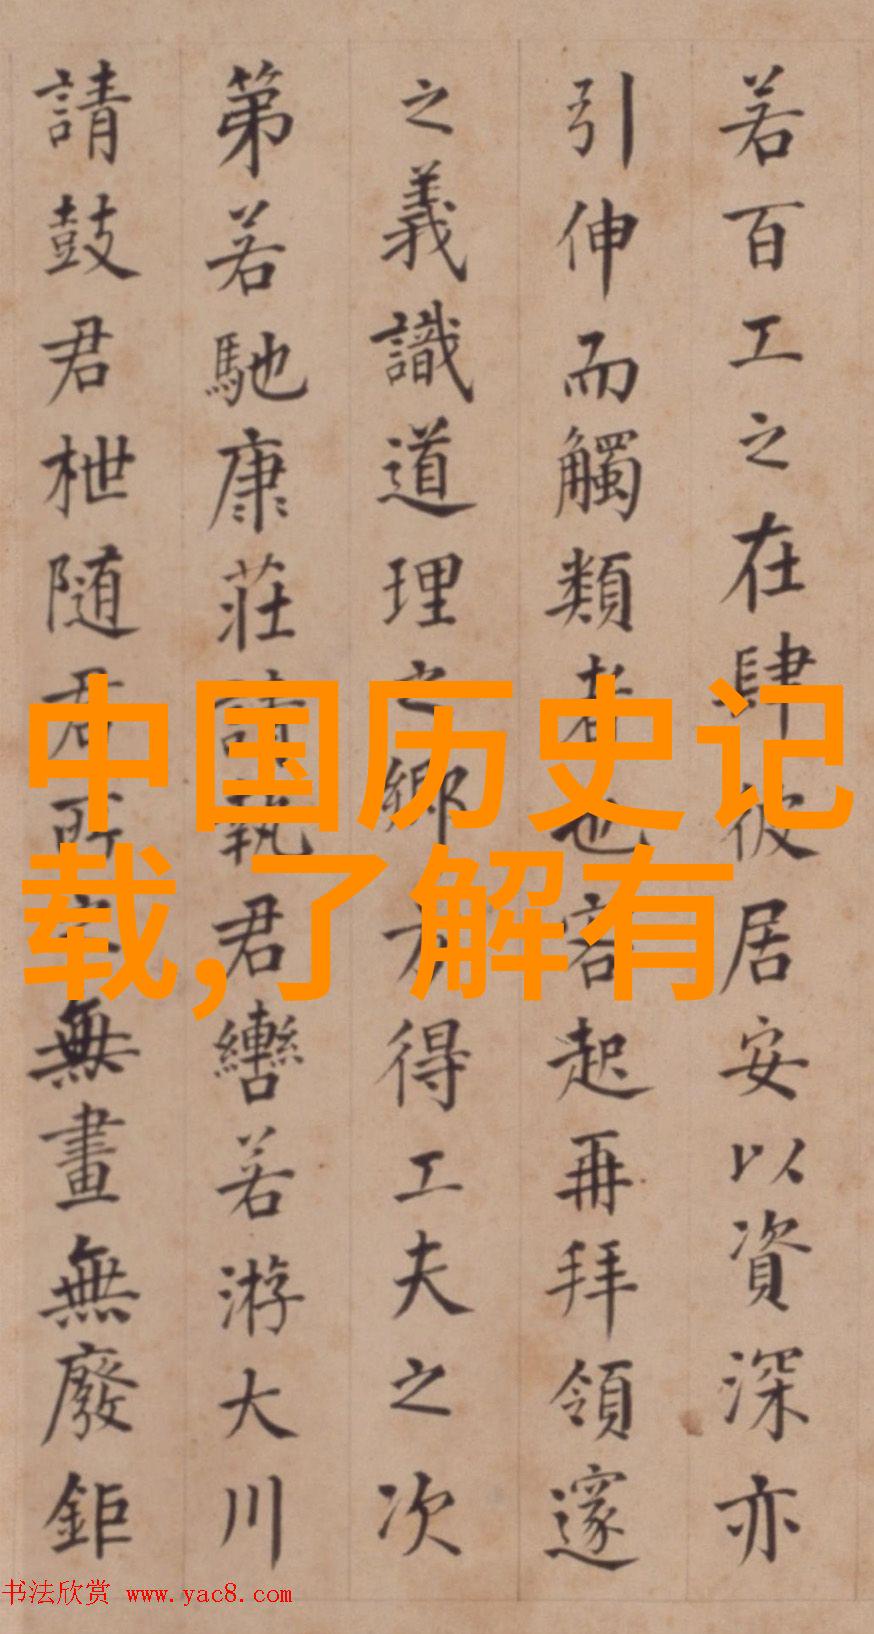 若百工之在肆彼居安以資深亦
引伸而觸類者也容起再拜領邃
之義識道理之鄉方得工夫之次
第若馳康莊請執君轡若游大川
請鼓君枻隨君所之無畫無廢鉅
中国历史记
载,了解有
书法欣赏 www.yac8.com